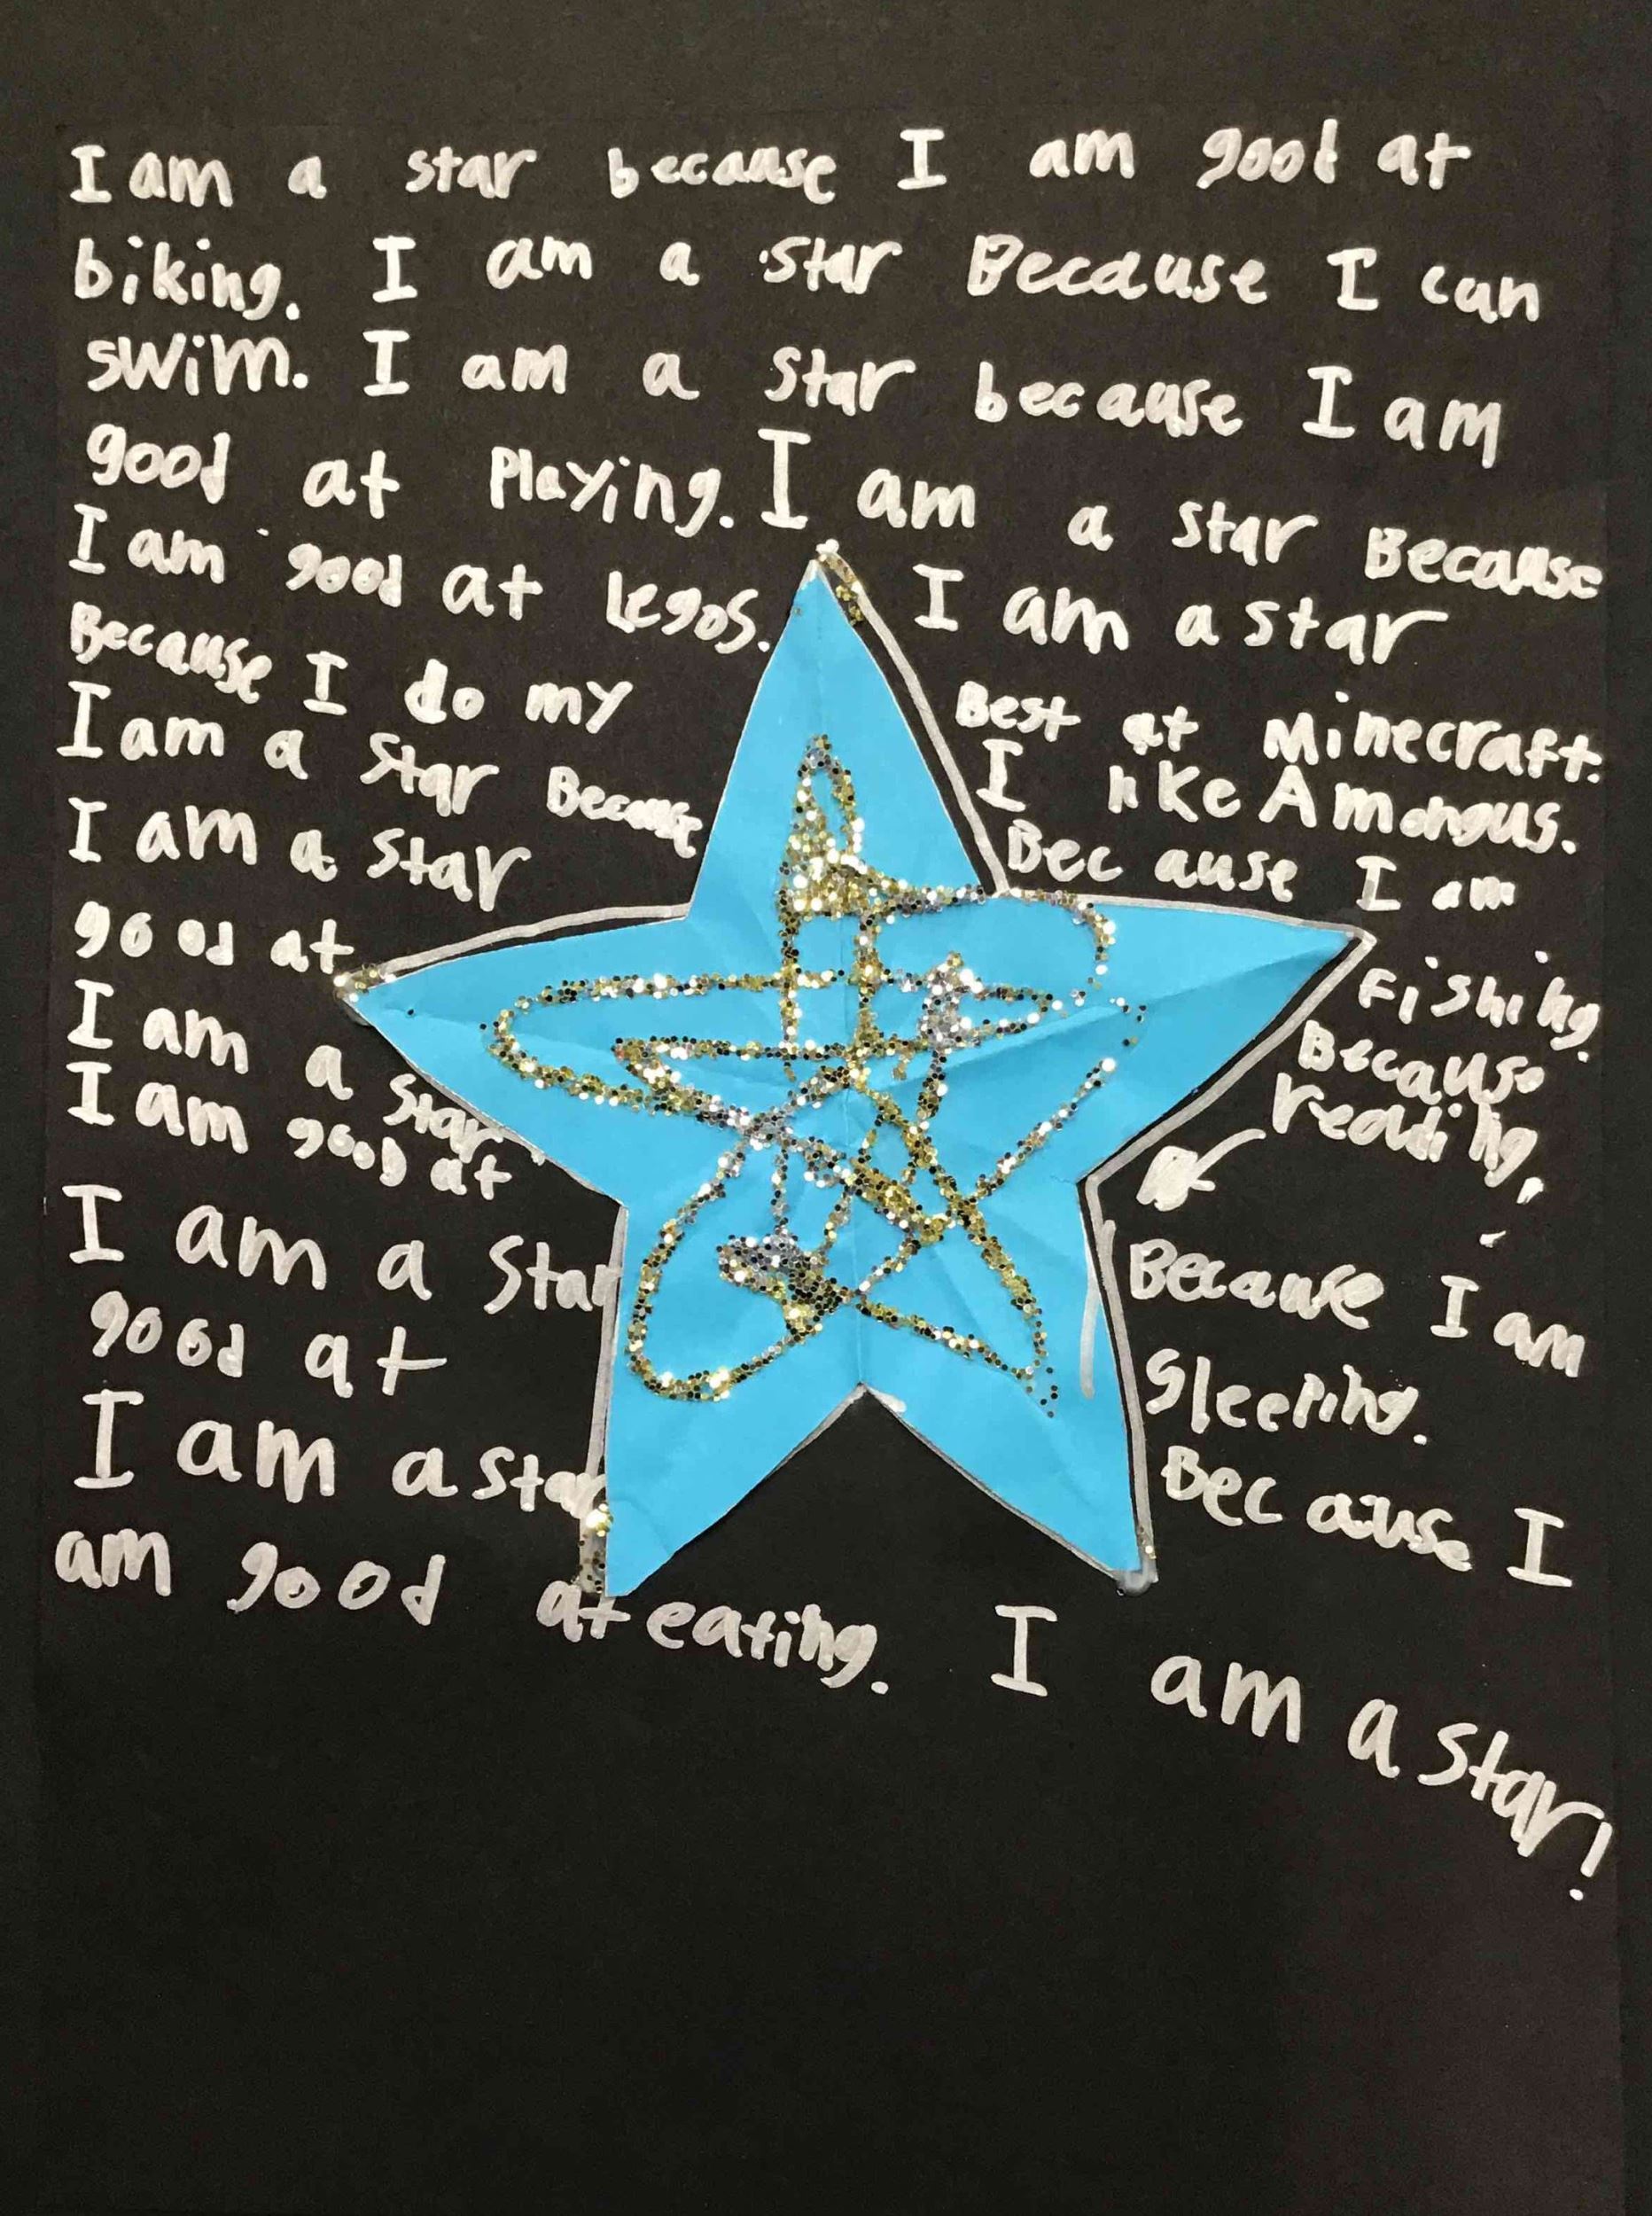 I am a star because I am good at
biking. I am a star Because I can
swim. I am a star because I am
good at Playing. I am a star Because
I am good at Legos. I am a star
Because I do my Best at Minecraft.
I am a star Because I like Amongus.
I am a star Because I am
good at Fishing.
I am a star Because
I am good at reading,
I am a star Because I am
good at Sleeping.
I am a star Because I
am good at eating. I am a star!